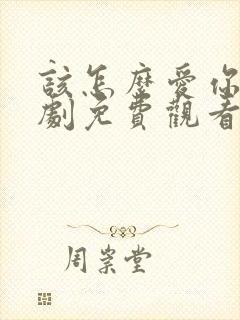 該怎麼愛你
劇免費觀看
周崇堂